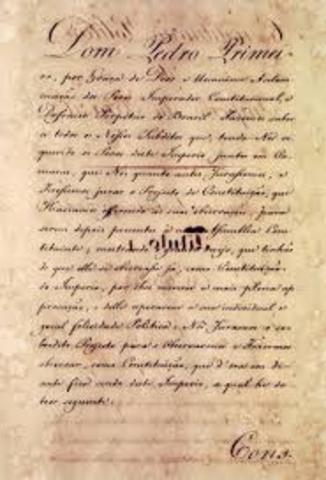 Dom Pedro Primei-
ro, por Graça de Deos e Unanime Aclam
mação dos Povos Imperador Constitucional, e
Defensor Perpetuo do Brasil: Fazemos saber
a todos os Nossos Subditos que, tendo Nos re
querido os Povos deste Imperio, juntos em Ca
maras, que Nós quanto antes, Jurassemos, e
Fizessemos jurar o Projecto de Constituição, que
Haviamos offerecido ás suas observações, para
serem depois presentes á nova Assemblea Cons
tituinte; mostrando desejo, que tinhão
de que elle se observasse já, como Constituição
do Imperio, por lhes merecer a mais plena ap
provação, e delle esperarem a sua individual e
geral felicidade Politica: Nós Juramos o so
bredito Projecto para o Observarmos e Fazermos
observar, como Constituição, que d'ora em di
ante fica sendo deste Imperio, a qual he do
teor seguinte:
Cons.